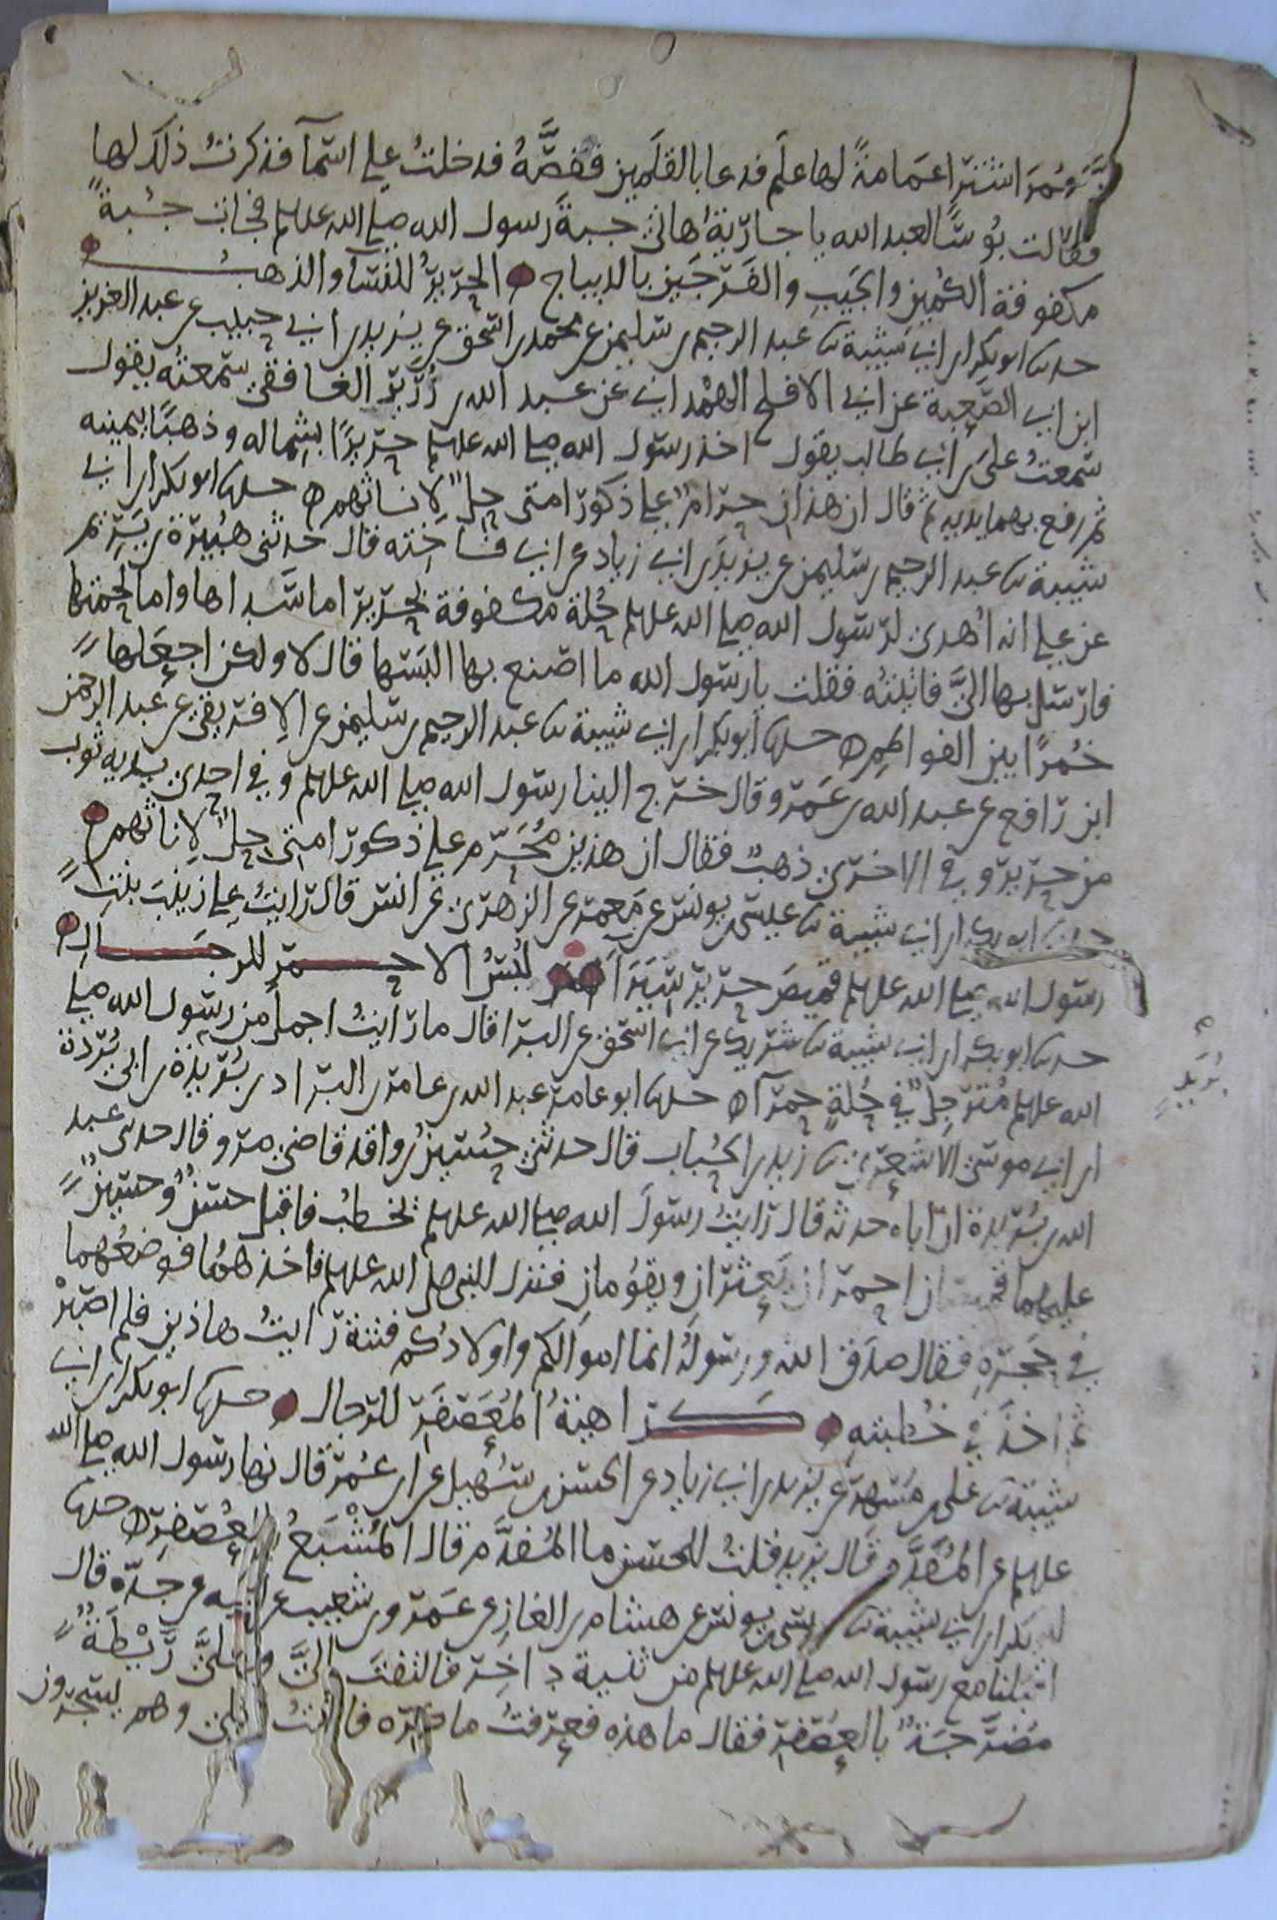 عمر اشترا عمامة لها علم فدعا بالقلمين فقصه فدخلت على اسما فذكرت ذلك لها
فقالت بؤسًا لعبد الله يا جارية هاتي جبة رسول الله صلى الله علىه وسلم فجات جبةً
مكفوفة الكمين والجيب والفرجين بالديباج الحرير للنسا والذهب
حدىنا ابو بكر ابن ابي شيبة ىنا عبد الرحيم بن سليمن عن محمد بن اسحق عن يزيد بن ابي حبيب عن عبد العزيز
ابن ابي الصعبة عن ابي الافلح الهمداني عن عبد الله بن زرير الغافقي سمعته يقول
سمعت علي بن ابي طالب يقول اخذ رسول الله صلى الله علىه وسلم حريرًا بشماله وذهبًا بيمينه
ثم رفع بهما يديه ثم قال ان هذان حرام على ذكور امتي حل لاناثهم حدىنا ابو بكر ابن ابي
شيبة ىنا عبد الرحيم بن سليمن عن يزيد بن ابي زياد عن ابي فاخته قال حدثني هبيرة بن يريم
عن علي انه اهدي لرسول الله صلى الله علىه وسلم حلة مكفوفة بحرير اما سداها واما لحمتها
فارسل بها الي فاتيته فقلت يا رسول الله ما اصنع بها البسها قال لا ولكن اجعلها
خمرًا بين الفواطم حدىنا ابو بكر ابن ابي شيبة ىنا عبد الرحيم بن سليمن عن الافريقي عن عبد الرحمن
ابن رافع عن عبد الله بن عمرو قال خرج الينا رسول الله صلى الله علىه وسلم وفي احدى يديه ثوب
من حرير وفي الاخرى ذهب فقال ان هذين محرم على ذكور امتي حل لاناثهم
حدىنا ابو بكر ابن ابي شيبة ىنا عيسى بن يونس عن معمر عن الزهري عن انس قال رايت على زينب بنت
رسول الله صلى الله علىه وسلم قميص حرير سيرا لبس الاحمر للرجال
حدىنا ابو بكر ابن ابي شيبة ىنا شريك عن ابي اسحق عن البرا قال ما رايت اجمل من رسول الله صلى
الله علىه وسلم مترجل في حلة حمرآ حدىنا ابو عامر عبد الله بن عامر بن البراد بن بريدة بن ابي بردة
ابن ابي موسى الاشعري ىنا زيد بن الحباب قال حدثني حسين بن واقد قاضي مرو قال حدثني عبد
الله بن بريدة ان اباه حدثه قال رايت رسول الله صلى الله علىه وسلم يخطب فاقبل حسن وحسين
عليهما قميصان احمران يعثران ويقومان فنزل النبي صلى الله علىه وسلم فاخذهما فوضعهما
في حجره فقال صدق الله ورسوله انما اموالكم واولادكم فتنة رايت هاذين فلم اصبر
ثم اخذ في خطبته كراهية المعصفر للرجال حدىنا ابو بكر ابن ابي
شيبة ىنا علي بن مسهر عن يزيد بن ابي زياد عن الحسن بن سهيل عن ابن عمر قال نها رسول الله صلى الله
علىه وسلم عن المفدم قال يزيد قلت للحسن ما المفدم قال المشبع بالعصفر حدىنا
ابو بكر ابن ابي شيبة ىنا عيسى بن يونس عن هشام بن الغاز عن عمرو بن شعيب عن ابيه عن جده قال
اقبلنا مع رسول الله صلى الله علىه وسلم من ثنية داخر فالتفت الي وعلي ريطة
مضرجة بالعصفر فقال ما هذه فعرفت ما كره فاتيت اهلي وهم يسجرون
بريد